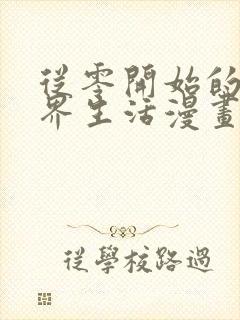 從零開始的
界生活漫畫
從學校路過